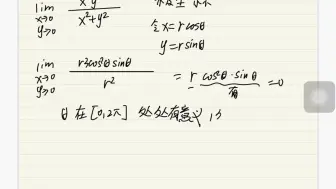 lim x→0 y→0 x²y / x²+y²
令 x=rcosθ
y=rsinθ
lim x→0 y→0 r³cos²θsinθ / r² = r cos²θ·sinθ =0
有
θ 在 [0,2π] 处处有意义